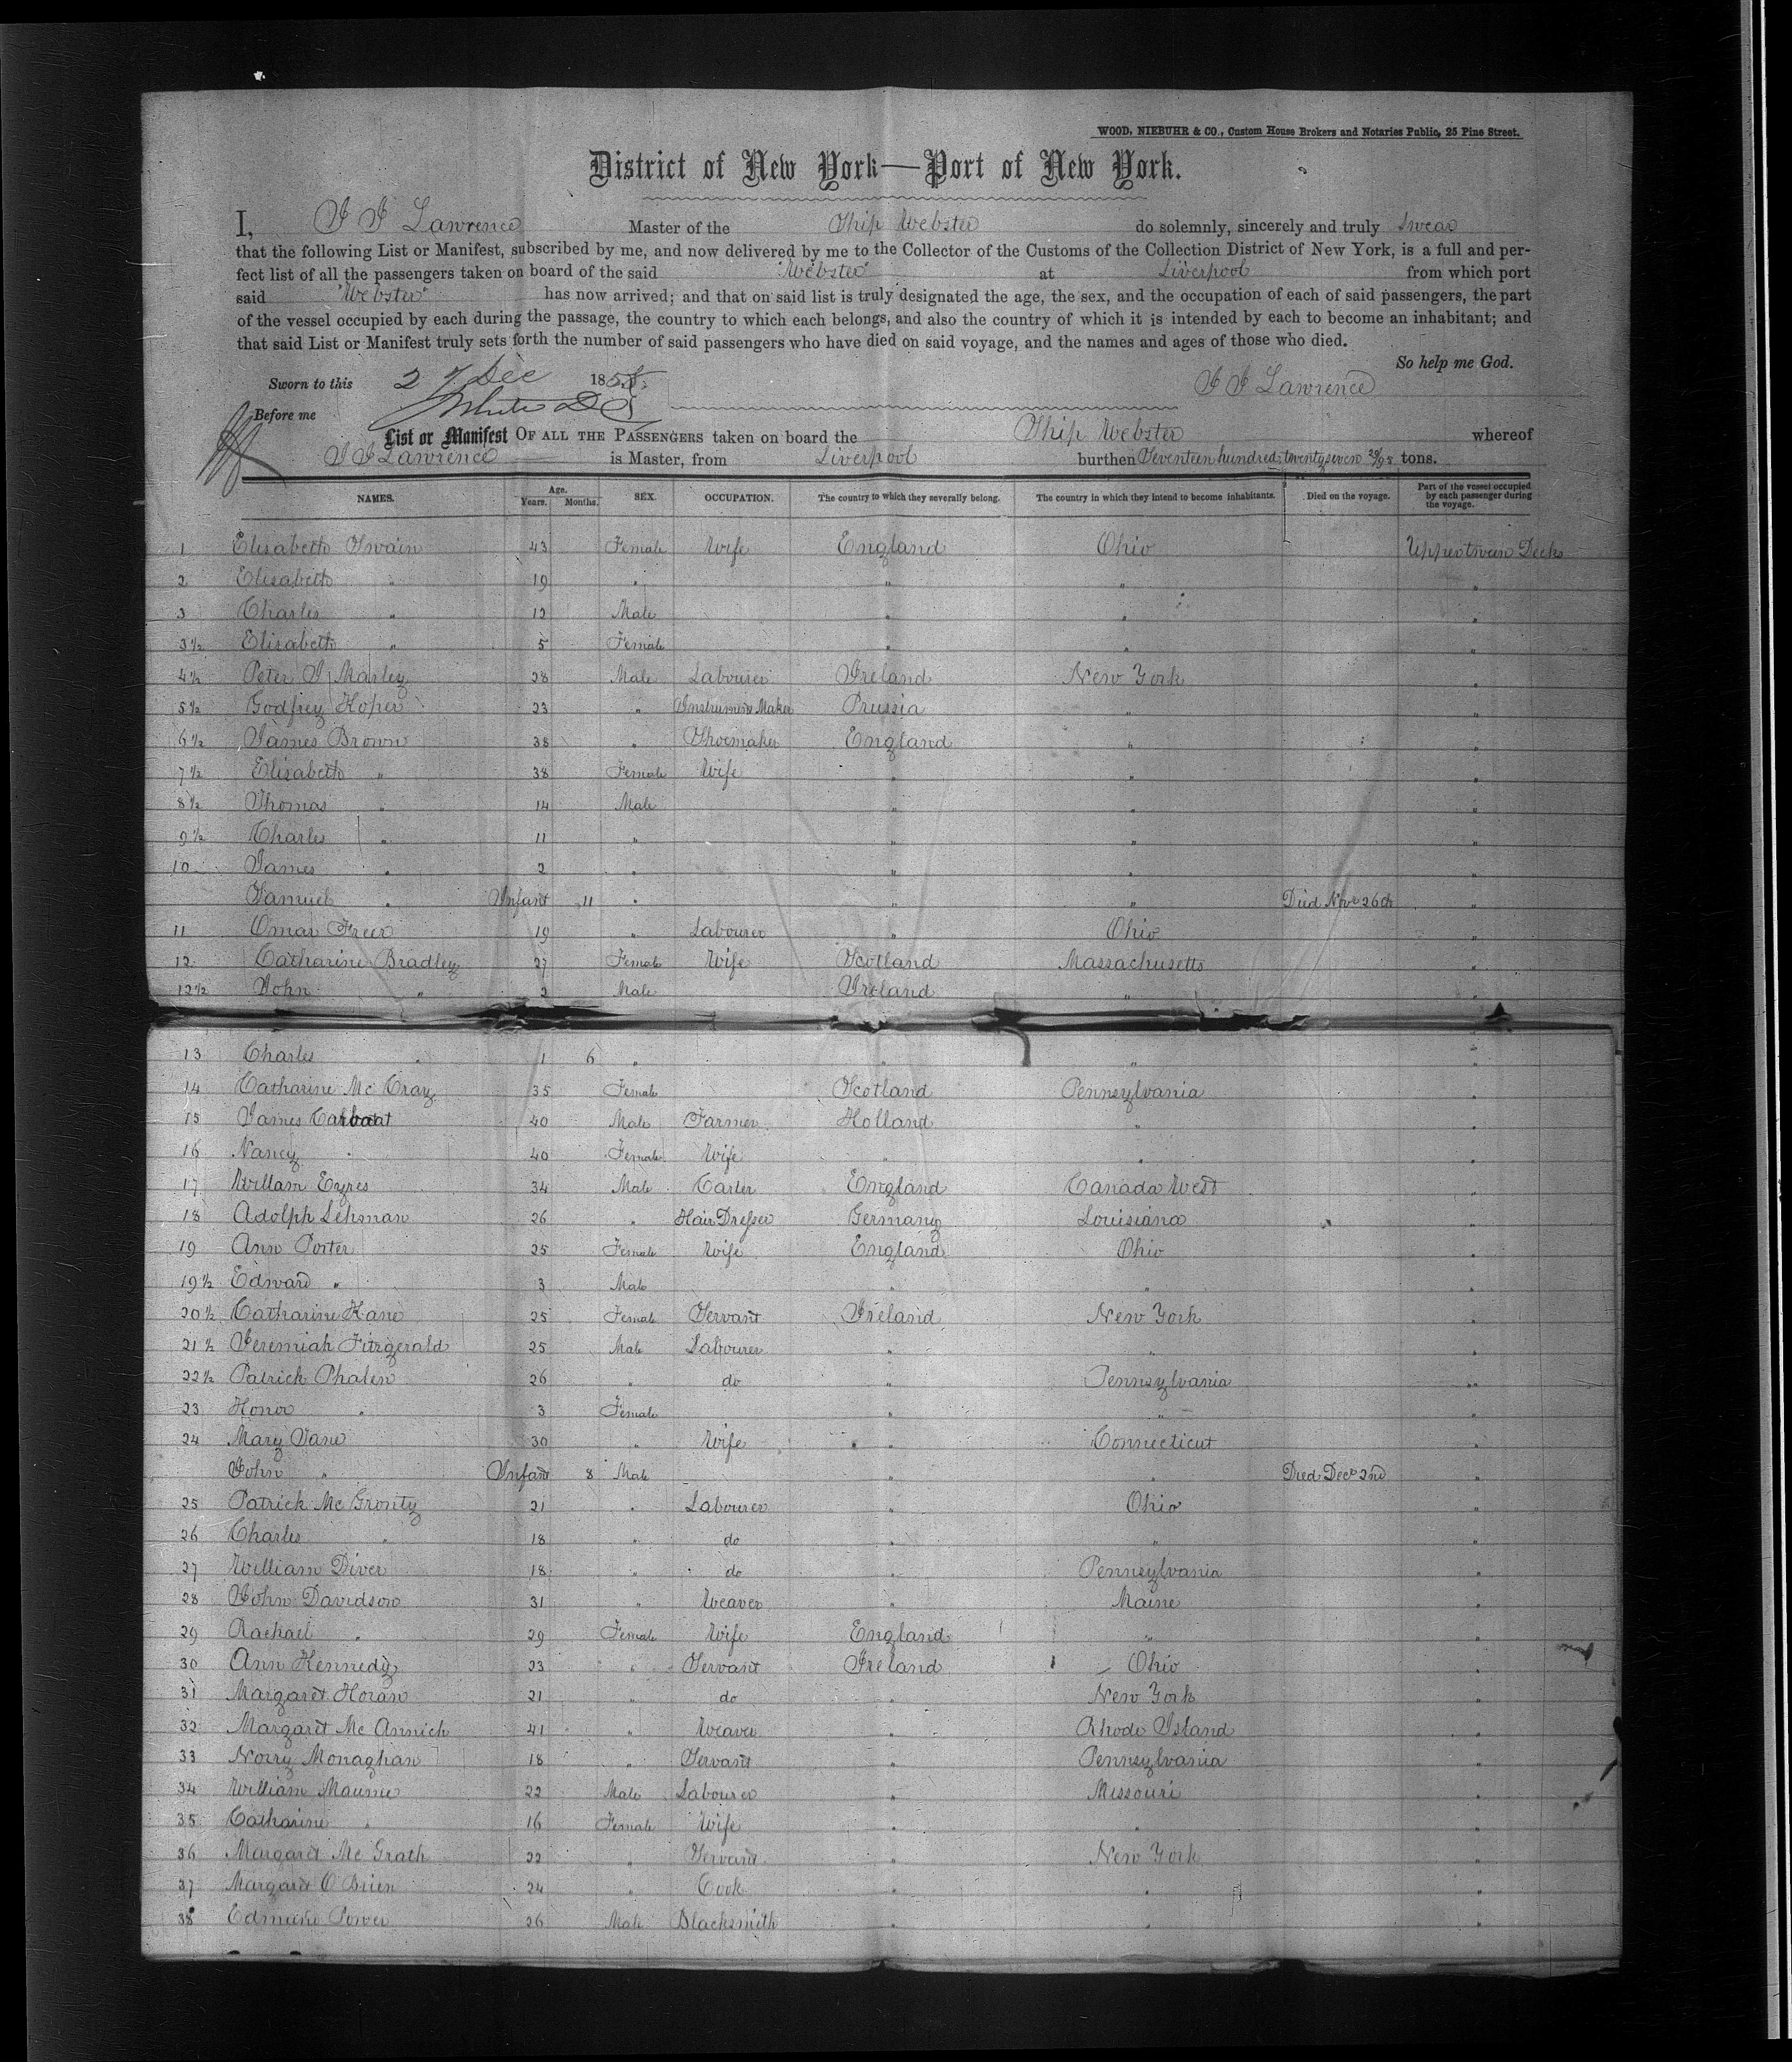 WOOD, NIEBUHR & CO., Custom House Brokers and Notaries Public, 25 Pine Street.
District of New York—Port of New York.
I, J J Lawrence Master of the Ship Webster do solemnly, sincerely and truly swear
that the following List or Manifest, subscribed by me, and now delivered by me to the Collector of the Customs of the Collection District of New York, is a full and per-
fect list of all the passengers taken on board of the said "Webster" at Liverpool from which port
said "Webster" has now arrived; and that on said list is truly designated the age, the sex, and the occupation of each of said passengers, the part
of the vessel occupied by each during the passage, the country to which each belongs, and also the country of which it is intended by each to become an inhabitant; and
that said List or Manifest truly sets forth the number of said passengers who have died on said voyage, and the names and ages of those who died.
So help me God.
Sworn to this 27 Dec 185
J J Lawrence
Before me White
List or Manifest OF ALL THE PASSENGERS taken on board the Ship Webster whereof
J J Lawrence is Master, from Liverpool burthen Seventeen hundred twentyseven 28/95 tons.
NAMES. Age. Years. Months. SEX. OCCUPATION. The country to which they severally belong. The country in which they intend to become inhabitants. Died on the voyage. Part of the vessel occupied by each passenger during the voyage.
1 Elisabeth Swain 43 Female Wife England Ohio Uppertween Decks
2 Elisabeth " 19 " " " "
3 Charles " 12 Male " " "
3½ Elisabeth " 5 Female " " "
4½ Peter J Marley 28 Male Labourer Ireland New York "
5½ Godfrey Koper 23 " Instrument Maker Prussia " "
6½ James Brown 38 " Shoemaker England " "
7½ Elisabeth " 38 Female Wife " " "
8½ Thomas " 14 Male " " "
9½ Charles " 11 " " " "
10 James " 2 " " " "
Samuel " Infant 11 " " " Died Nov 26th "
11 Omar Freer 19 " Labourer " Ohio "
12 Catharine Bradley 27 Female Wife Scotland Massachusetts "
12½ John " 2 Male Ireland " "
13 Charles " 1 6 " " " "
14 Catharine Mc Cray 35 Female Scotland Pennsylvania "
15 James 40 Male Farmer Holland " "
16 Nancy " 40 Female Wife " " "
17 William Eyres 34 Male Carter England Canada West "
18 Adolph Lehman 26 " Hair Dresser Germany Louisiana "
19 Ann Porter 25 Female Wife England Ohio "
19½ Edward " 3 Male " " "
20½ Catharine Kane 25 Female Servant Ireland New York "
21½ Jeremiah Fitzgerald 25 Male Labourer " " "
22½ Patrick Phalen 26 " do " Pennsylvania "
23 Honor " 3 Female " " "
24 Mary Jane 30 " Wife " Connecticut "
John " Infant 8 Male " Died Dec 2nd "
25 Patrick Mc Gronty 21 " Labourer " Ohio "
26 Charles " 18 " do " " "
27 William Diver 18 " do " Pennsylvania "
28 John Davidson 31 " Weaver " Maine "
29 Rachael " 29 Female Wife England " "
30 Ann Kennedy 23 " Servant Ireland Ohio "
31 Margaret Horan 21 " do " New York "
32 Margaret Mc Annich 41 " Weaver " Rhode Island "
33 Norry Monaghan 18 " Servant " Pennsylvania "
34 William Maume 22 Male Labourer " Missouri "
35 Catharine " 16 Female Wife " " "
36 Margaret Mc Grath 22 " Servant " New York "
37 Margaret O Brien 24 " Cook " " "
38 Edmund Power 26 Male Blacksmith " " "